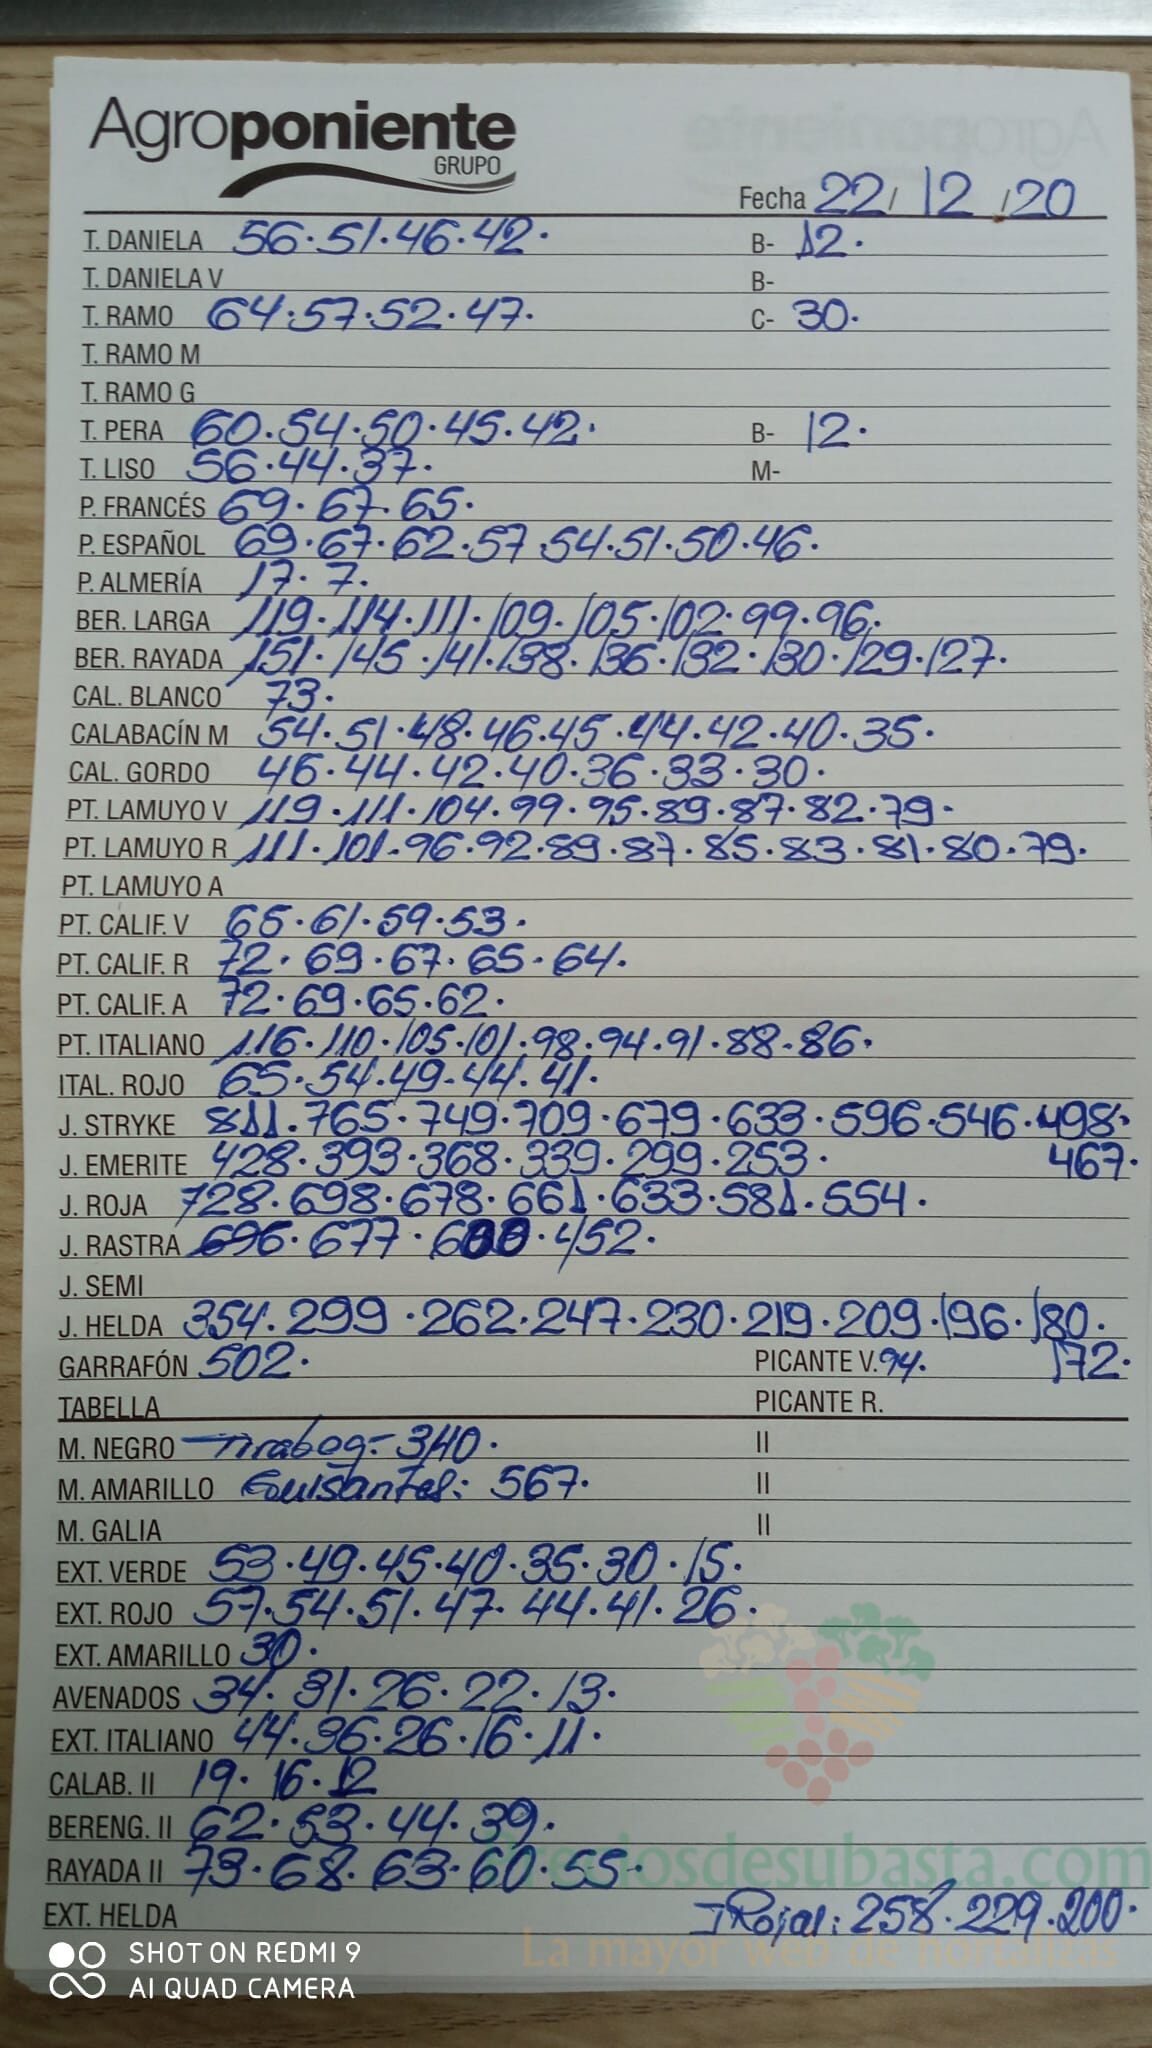 Agroponiente
GRUPO
Fecha 22/12/20
T. DANIELA 56.51.46.42. B- 12.
T. DANIELA V B-
T. RAMO 64.57.52.47. C- 30.
T. RAMO M
T. RAMO G
T. PERA 60.54.50.45.42. B- 12.
T. LISO 56.44.37. M-
P. FRANCÉS 69.67.65.
P. ESPAÑOL 69.67.62.57 54.51.50.46.
P. ALMERÍA 17.7.
BER. LARGA 119.114.111.109.105.102.99.96.
BER. RAYADA 151.145.141.138.136.132.130.129.127.
CAL. BLANCO 73.
CALABACÍN M 54.51.48.46.45.44.42.40.35.
CAL. GORDO 46.44.42.40.36.33.30.
PT. LAMUYO V 119.111.104.99.95.89.87.82.79.
PT. LAMUYO R 111.101.96.92.89.87.85.83.81.80.79.
PT. LAMUYO A
PT. CALIF. V 65.61.59.53.
PT. CALIF. R 72.69.67.65.64.
PT. CALIF. A 72.69.65.62.
PT. ITALIANO 116.110.105.101.98.94.91.88.86.
ITAL. ROJO 65.54.49.44.41.
J. STRYKE 811.765.749.709.679.633.596.546.498.
J. EMERITE 428.393.368.339.299.253. 467.
J. ROJA 728.698.678.661.633.581.554.
J. RASTRA 696.677.600.452.
J. SEMI
J. HELDA 354.299.262.247.230.219.209.196.180.
GARRAFÓN 502. PICANTE V. 94. 172.
TABELLA PICANTE R.
M. NEGRO 340. II
M. AMARILLO Guisantes: 567. II
M. GALIA II
EXT. VERDE 53.49.45.40.35.30.15.
EXT. ROJO 57.54.51.47.44.41.26.
EXT. AMARILLO 30.
AVENADOS 34.31.26.22.13.
EXT. ITALIANO 44.36.26.16.11.
CALAB. II 19.16.12
BERENG. II 62.53.44.39.
RAYADA II 73.68.63.60.55.
Preciosdesubasta.com
EXT. HELDA 258.229.200.
La mayor web de hortalizas
SHOT ON REDMI 9
AI QUAD CAMERA